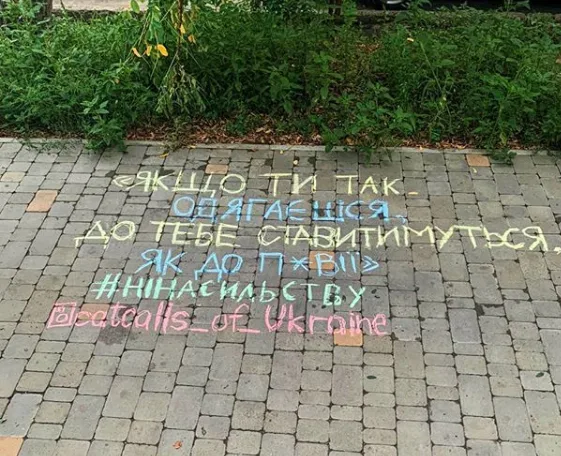 «ЯКЩО ТИ ТАК
ОДЯГАЄШСЯ,
ДО ТЕБЕ СТАВИТИМУТЬСЯ,
ЯК ДО П*ВІЇ»
#НІНАСИЛЬСТВУ
@catcalls_of_Ukraine